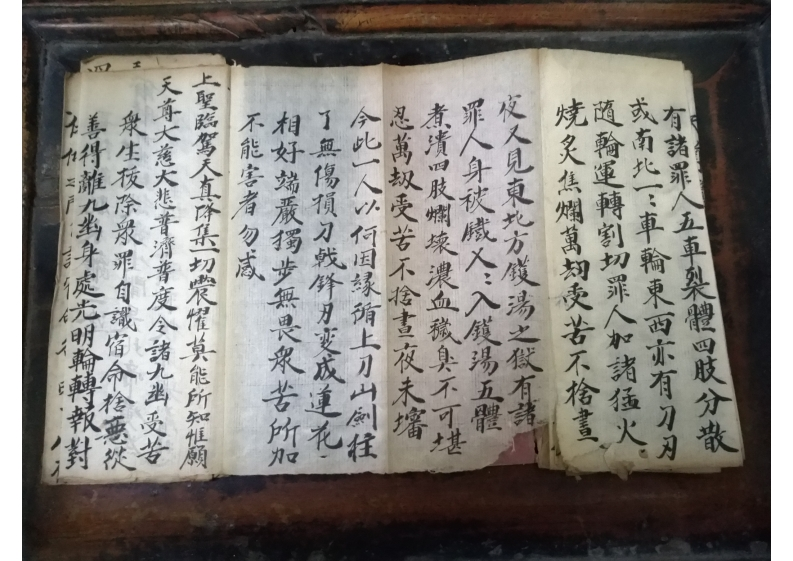 有諸罪人五車裂體四肢分散
或南北一〻車輪東西亦有刀刃
隨輪運轉割切罪人加諸猛火
燒炙焦爛萬劫受苦不捨晝
夜又見東北方鑊湯之獄有諸
罪人身被鐵乂〻入鑊湯五體
煮潰四肢爛壞濃血穢臭不可堪
忍萬劫受苦不捨晝夜未審
今此一人以何因緣蹈上刀山劍柱
了無傷損刀戟鋒刃變成蓮花
相好端嚴獨步無畏衆苦所加
不能害者勿惑
上聖臨駕天真降集切懷懼莫能所知惟願
天尊大慈大悲普濟普度令諸九幽受苦
衆生拔除衆罪自識宿命捨惡從
善得離九幽身處光明輪轉報對